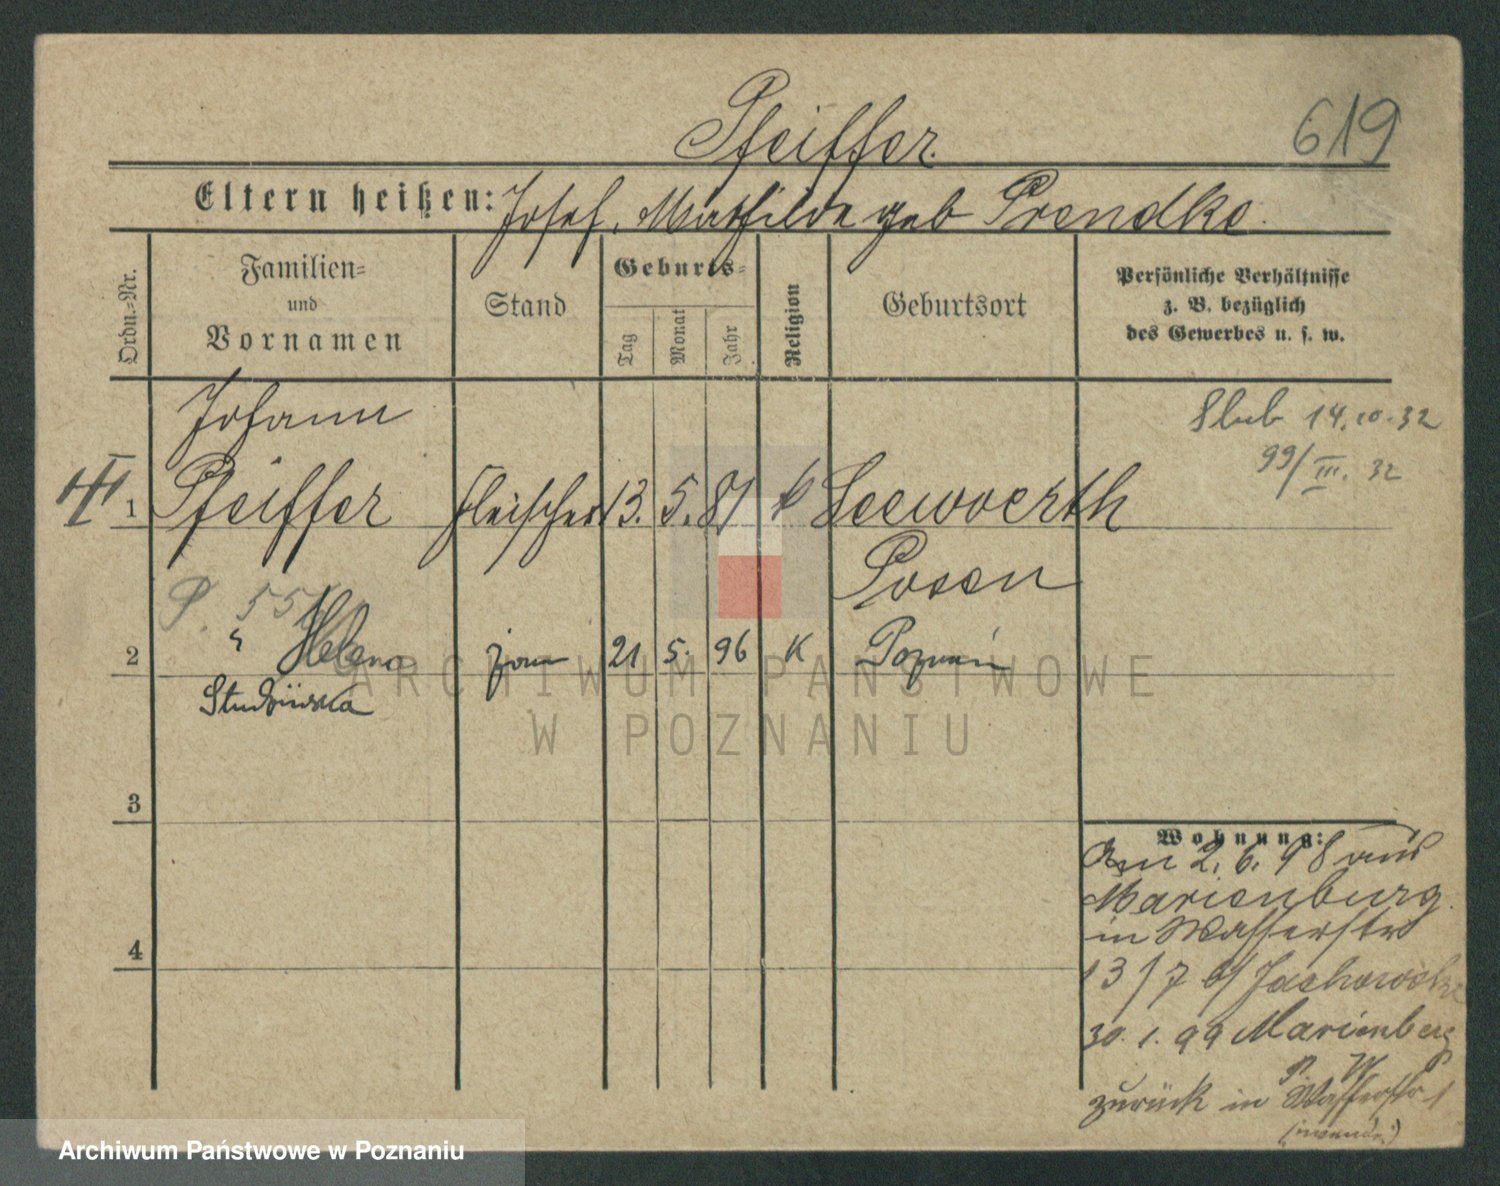 Pfeiffer.
619
Eltern heißen: Josef, Mathilde geb Prendke.
Ordn.-Nr.
Familien-
und
Vornamen
Stand
Geburts-
Tag
Monat
Jahr
Religion
Geburtsort
Persönliche Verhältnisse
z. B. bezüglich
des Gewerbes u. s. w.
Johann
Ślub 14.10.32
99/III. 32
1 Pfeiffer Fleischer 13. 5. 81 k Seewoerth
Posen
P. 55
2 " Helena żona 21 5. 96 K Poznań
Studzińska
3
Wohnung:
Am 2. 6. 98 aus
Marienburg.
in Wasserstr
4
13/7 b/
30. 1. 99 Marienberg
P. W
zurück in Wasserstr 1
ARCHIWUM PAŃSTWOWE
W POZNANIU
Archiwum Państwowe w Poznaniu